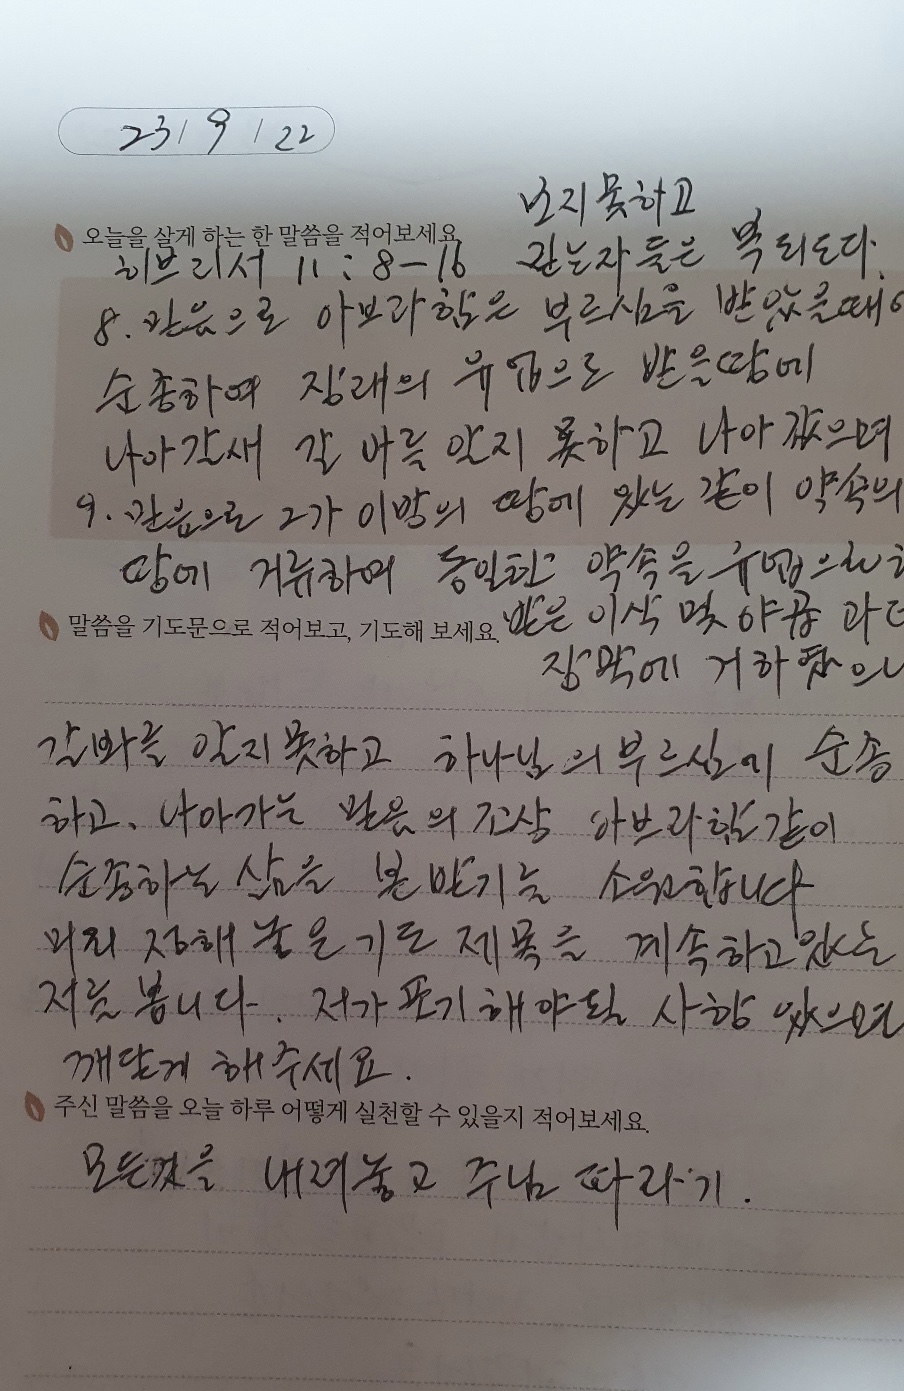 23 / 9 / 22
보지 못하고
오늘을 살게 하는 한 말씀을 적어보세요.
히브리서 11 : 8-16 믿는자들은 복되도다.
8. 믿음으로 아브라함은 부르심을 받았을때에
순종하여 장래의 유업으로 받을땅에
나아갈새 갈 바를 알지 못하고 나아갔으며
9. 믿음으로 그가 이방의 땅에 있는 같이 약속의
땅에 거류하며 동일한 약속을 유업으로
말씀을 기도문으로 적어보고, 기도해 보세요. 받은 이삭 및 야곱 과 더
장막에 거하였으니
갈바를 알지못하고 하나님의 부르심에 순종
하고, 나아가는 믿음의 조상 아브라함같이
순종하는 삶을 본받기를 소원합니다
미리 정해 놓은 기도 제목을 계속하고있는
저를 봅니다. 저가 포기해야될 사항 있으면
깨닫게 해주세요.
주신 말씀을 오늘 하루 어떻게 실천할 수 있을지 적어보세요.
모든것을 내려놓고 주님 따라가기.